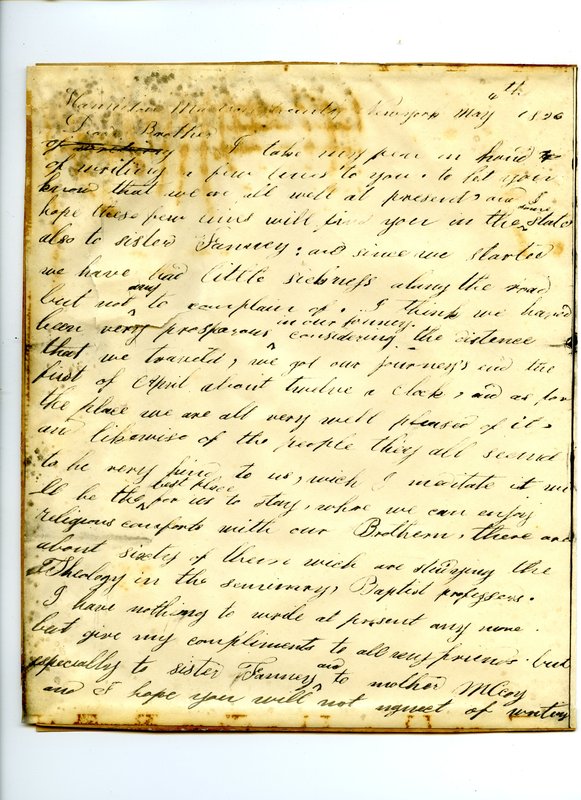 Hamilton Madison County Newyork May 4th 1826
Dear Brother
I take my pen in hand
of writing a few lines to you. to let you
know that we are all well at present, and
hope these few lines will find you in the same State
also to sister Fanney: and since we started
we have had little sickness along the road
but not any to complain of. I think we have
been very prosparous in our journey, considering the distence
that we traveld, we got our journeys end the
first of April about twelve a clock, and as for
the place we are all very well pleased of it,
and likewise of the people they all seemd
to be very kind to us, wich I meditate it wi
ll be the best place for us to stay, where we can enjoy
religious comforts with our Brothern, there are
about sixety of them wich are studying the
Theology in the seminary, Baptist professors.
I have nothing to wrode at present any more.
but give my compliments to all my friends but
especially to sister Fanney and to mother McCoy
and I hope you will not negnect of writing